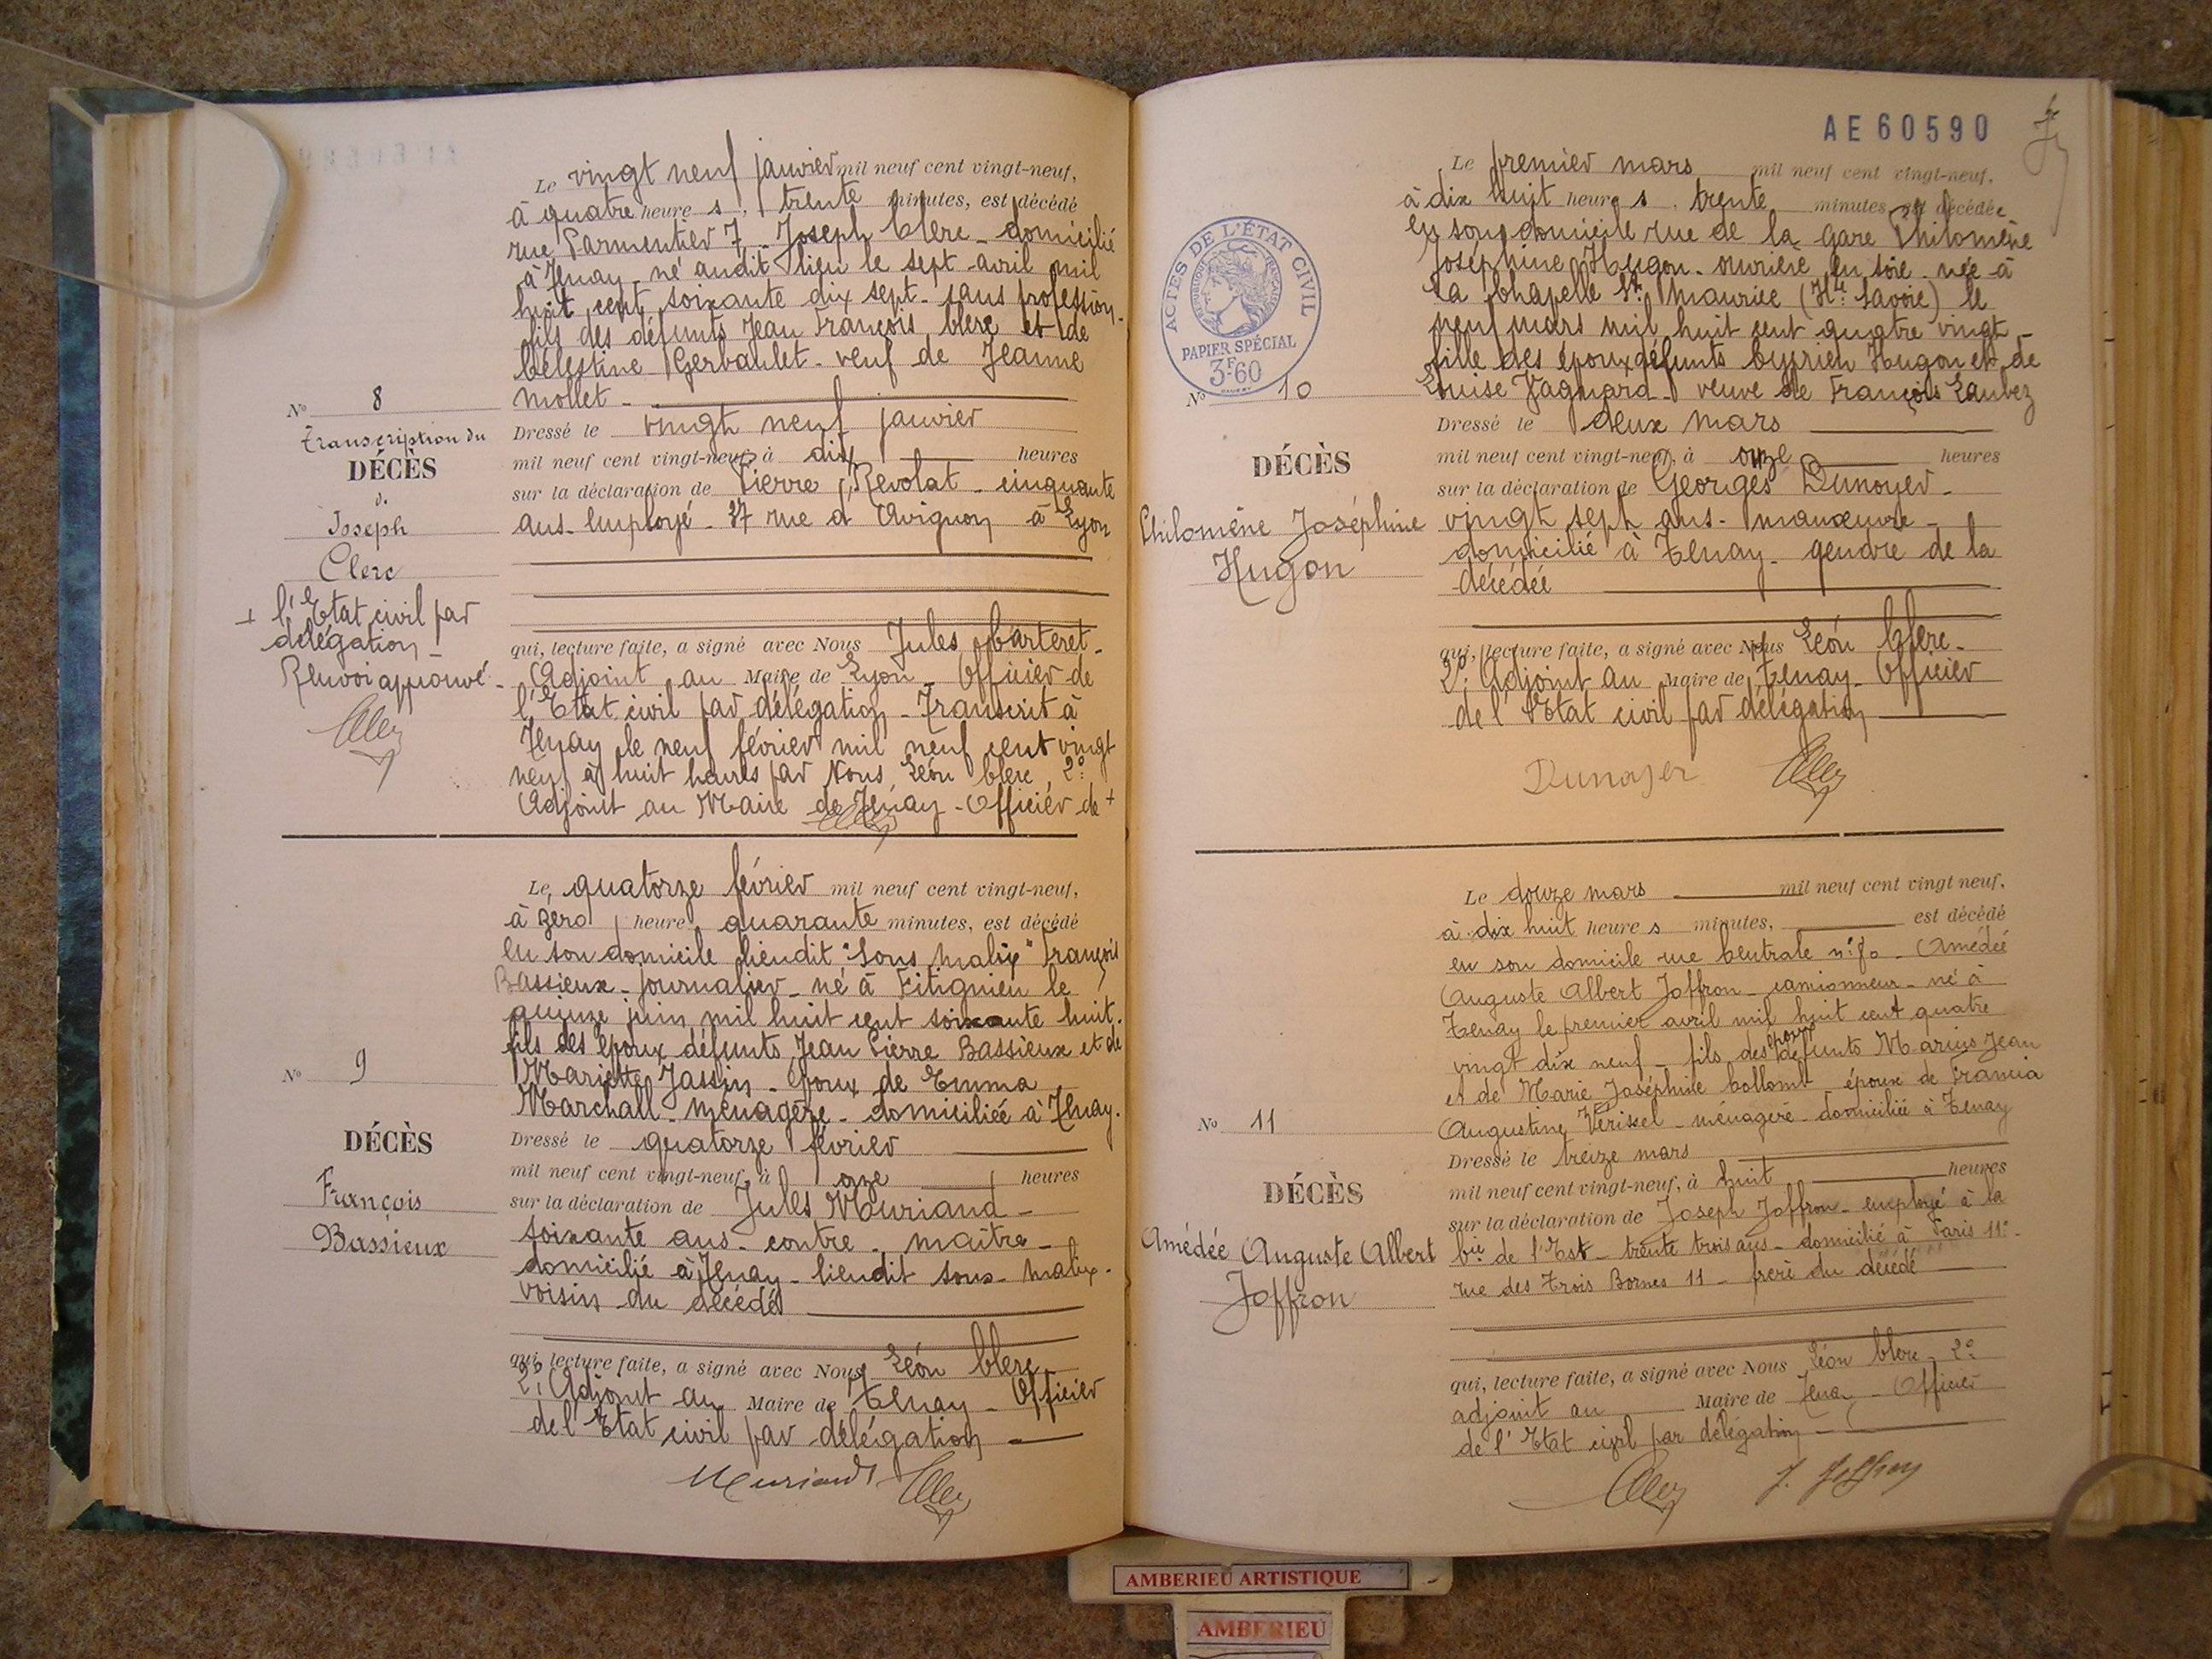 Le vingt neuf janvier mil neuf cent vingt-neuf,
à quatre heures, trente minutes, est décédé
rue Parmentier 7 - Joseph Clerc - domicilié
à Tenay - né audit lieu le sept avril mil
huit cent soixante dix sept - sans profession -
fils des défunts Jean François Clerc et de
Célestine Gerbaulet - veuf de Jeanne
Mollet -
No 8
Transcription du
DÉCÈS
de
Joseph
Clerc
+ l'Etat civil par
délégation -
Renvoi approuvé -
Dressé le vingt neuf janvier
mil neuf cent vingt-neuf, à dix heures
sur la déclaration de Pierre Revolat - cinquante
ans - employé - 27 rue d'Avignon à Lyon
qui, lecture faite, a signé avec Nous Jules Carteret -
Adjoint au Maire de Lyon - Officier de
l'Etat civil par délégation - Transcrit à
Tenay le neuf février mil neuf cent vingt
neuf à huit heures par Nous Léon Clerc, 2e
Adjoint au Maire de Tenay - Officier de +
Le quatorze février mil neuf cent vingt-neuf,
à zéro heure, quarante minutes, est décédé
en son domicile lieudit "Sous Malix" François
Bassieux - journalier - né à Fitignieu le
quinze juin mil huit cent soixante huit.
fils des époux défunts Jean Pierre Bassieux et de
Mariette Jassin - époux de Emma
Marchall - ménagère - domiciliée à Tenay.
No 9
DÉCÈS
François
Bassieux
Dressé le quatorze février
mil neuf cent vingt-neuf, à onze heures
sur la déclaration de Jules Muriand -
soixante ans - contre-maître -
domicilié à Tenay - lieudit sous-malix -
voisin du décédé
qui, lecture faite, a signé avec Nous Léon Clerc
2e Adjoint au Maire de Tenay - Officier
de l'Etat civil par délégation -
Muriand
AE 60590
ACTES DE L'ÉTAT CIVIL
RÉPUBLIQUE FRANÇAISE
PAPIER SPÉCIAL
3F60
Le premier mars mil neuf cent vingt-neuf,
à dix huit heures, trente minutes est décédée
en son domicile rue de la Gare Philomène
Joséphine Hugon - ouvrière en soie - née à
La Chapelle St Maurice (Hte Savoie) le
neuf mars mil huit cent quatre vingt -
fille des époux défunts Cyprien Hugon et de
Louise Vagnard - veuve de François Laubez
No 10
DÉCÈS
Philomène Joséphine
Hugon
Dressé le deux mars
mil neuf cent vingt-neuf, à onze heures
sur la déclaration de Georges Dunoyer -
vingt sept ans - manœuvre -
domicilié à Tenay - gendre de la
décédée
qui, lecture faite, a signé avec Nous Léon Clerc -
2e Adjoint au Maire de Tenay - Officier
de l'Etat civil par délégation
Dunoyer
Le douze mars mil neuf cent vingt neuf,
à dix huit heures minutes, est décédé
en son domicile rue Centrale n° 70 - Amédée
Auguste Albert Joffron - camionneur - né à
Tenay le premier avril mil huit cent quatre
vingt dix neuf - fils des époux défunts Marius Jean
et de Marie Joséphine Collomb époux de Francia
Augustine Vérissel - ménagère - domiciliée à Tenay
No 11
DÉCÈS
Amédée Auguste Albert
Joffron
Dressé le treize mars
mil neuf cent vingt-neuf, à huit heures
sur la déclaration de Joseph Joffron - employé à la
Cie de l'Est - trente trois ans - domicilié à Paris 11e -
rue des Trois Bornes 11 - frère du décédé
qui, lecture faite, a signé avec Nous Léon Clerc - 2e
adjoint au Maire de Tenay - Officier
de l'Etat civil par délégation -
J. Joffron
AMBERIEU ARTISTIQUE
AMBERIEU